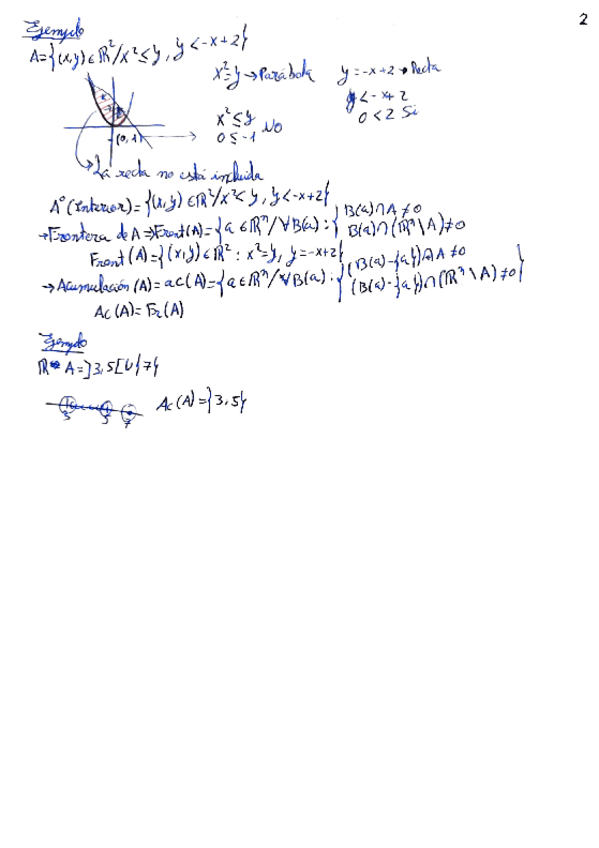 2
Ejemplo
A={(x,y)∈ℝ²/x²≤y, y<-x+2}
x²=y→Parábola
y=-x+2→Recta
y<-x+2
0<2 Si
x²≤y
0≤-1 No
(0,-1)
La recta no está incluida
A°(Interior)={(x,y)∈ℝ²/x²<y, y<-x+2}
→Frontera de A⇒Front(A)={a∈ℝⁿ/∀B(a):{B(a)∩A≠0
B(a)∩(ℝⁿ\A)≠0
Front(A)={(x,y)∈ℝ²: x²=y, y=-x+2}
→Acumulación(A)=ac(A)={a∈ℝⁿ/∀B(a):{(B(a)-{a})∩A≠0
(B(a)-{a})∩(ℝⁿ\A)≠0}
Ac(A)=Fr(A)
Ejemplo
ℝ A=]3,5[∪{7}
3 5 7
Ac(A)={3,5}